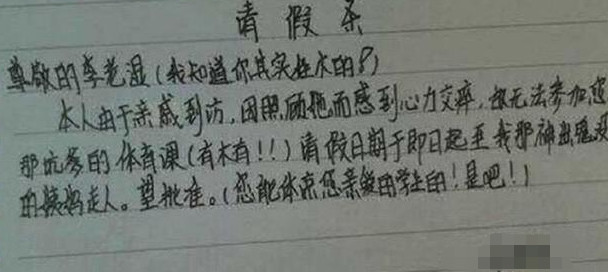 请假条
尊敬的李老湿(我知道你其实在木的?)
本人由于亲戚到访,因照顾她而感到心力交瘁,故无法参加您
那坑爹的体育课(有木有!!)请假日期于即日起至我那神出鬼没
的姨妈走人。望批准。(您能体谅您亲爱的学生的!是吧!)